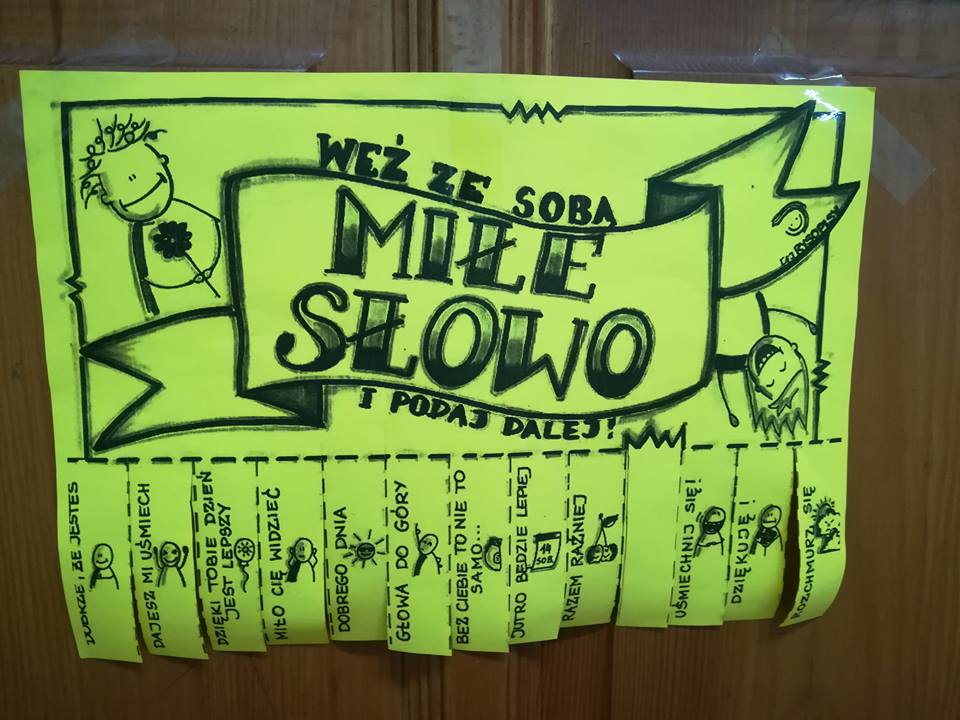 WEŹ ZE SOBĄ
MIŁE
SŁOWO
I PODAJ DALEJ!
DOBRZE, ŻE JESTEŚ
DAJESZ MI UŚMIECH
DZIĘKI TOBIE DZIEŃ
JEST LEPSZY
MIŁO CIĘ WIDZIEĆ
DOBREGO DNIA
GŁOWA DO GÓRY
BEZ CIEBIE TO NIE TO
SAMO...
JUTRO BĘDZIE LEPIEJ
SOB.
RAZEM RAŹNIEJ
UŚMIECHNIJ SIĘ!
DZIĘKUJĘ!
ROZCHMURZ SIĘ